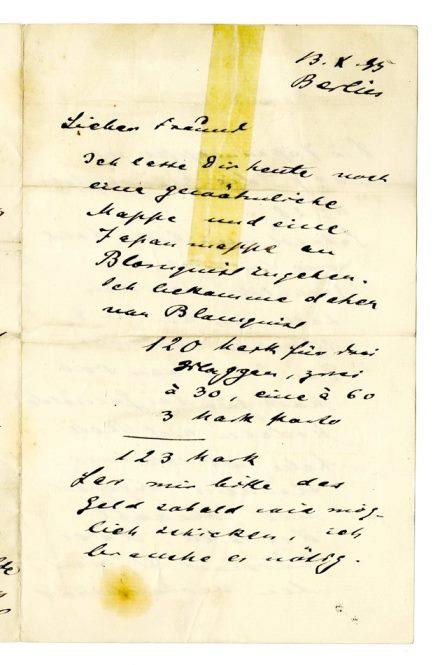 13. X. 95
Berlin
Lieber Freund
Ich lasse Dir heute noch
eine gewöhnliche
Mappe und eine
Japanmappe an
Blomqvist zugehen.
Ich bekomme daher
von Blomqvist
120 Mark für drei
Mappen, zwei
à 30, eine à 60
3 Mark Porto
123 Mark
Lass mir bitte das
Geld sobald wie mög-
lich schicken, ich
brauche es nötig.